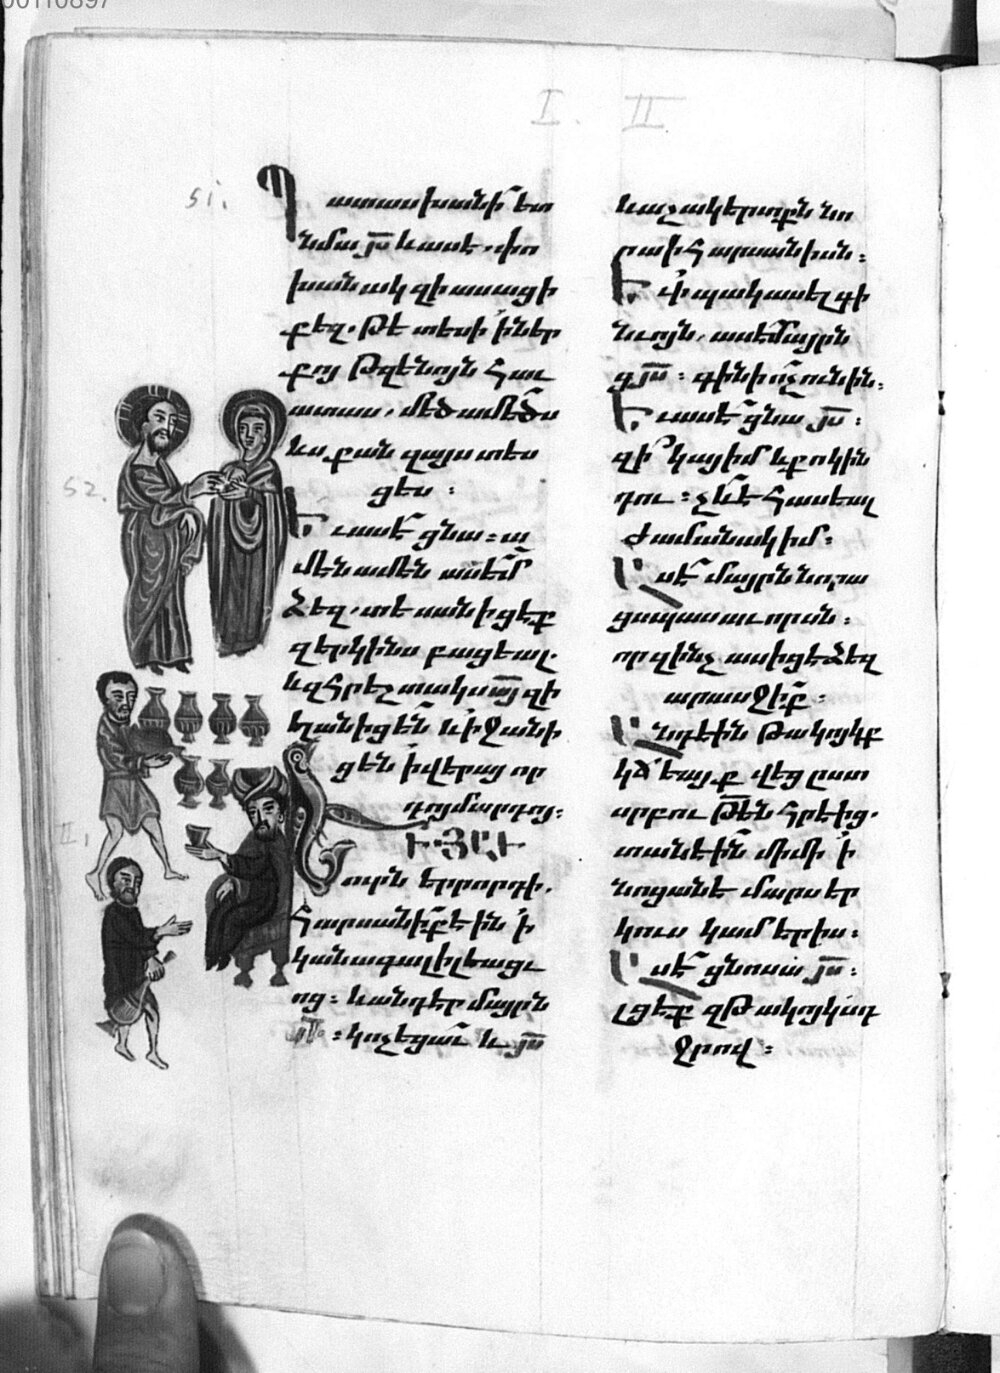 00110897
I. II
51.
Պատասխանի ետ
նմա յս և ասէ. փո
խանակ զի ասացի
քեզ. թէ տեսի ի ներ
քոյ թզենոյն հաւ
ատաս. մեծամեծս
ևս քան զայս տես
ցես :
52.
Եւ ասէ ցնա : ա
մէն ամէն ասեմ
ձեզ. տեսանիցէք
զերկինս բացեալ.
և զհրեշտակս այ զի
ելանիցեն և իջանի
ցեն ի վերայ որ
դոյ մարդոյ :
II, 1
Ի յաւուրն երրորդի.
հարսանիք էին ի
կանա գալիլեացւ
ոց : և անդ էր մայրն
յի : կոչեցաւ և յս
և աշակերտքն նո
րա ի հարսանիսն :
Եւ ի պակասել գի
նւոյն. ասէ մայրն
ցյս : գինի ոչ ունին :
Եւ ասէ ցնա յս :
զի կայ իմ և քո կին
դու : չև է հասեալ
ժամանակ իմ :
Ասէ մայրն նորա
ցսպասաւորսն :
որ զինչ ասիցէ ձեզ
արասջիք :
Անդ էին թակոյկք
կճեայք վեց ըստ
սրբութեն հրէից.
տանէին մի մի ի
նոցանէ մարս եր
կուս կամ երիս :
Ասէ ցնոսա յս :
լցէք զթակոյկսդ
ջրով :